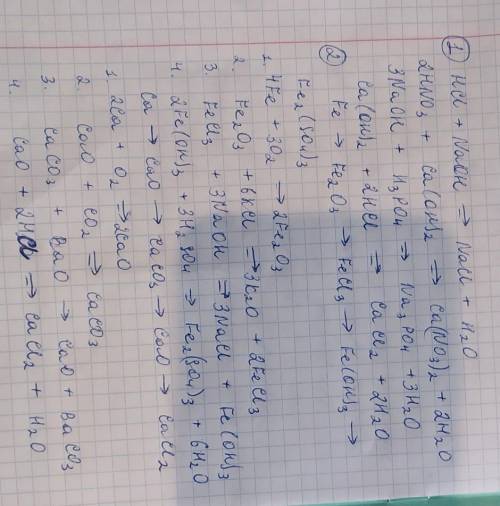 ① HCl + NaOH ⇒ NaCl + H2O
2HNO3 + Ca(OH)2 ⇒ Ca(NO3)2 + 2H2O
3NaOH + H3PO4 ⇒ Na3PO4 + 3H2O
Ca(OH)2 + 2HCl ⇒ CaCl2 + 2H2O
② Fe → Fe2O3 → FeCl3 → Fe(OH)3 →
Fe2(SO4)3
1. 4Fe + 3O2 → 2Fe2O3
2. Fe2O3 + 6KCl ⇒ 3K2O + 2FeCl3
3. FeCl3 + 3NaOH ⇒ 3NaCl + Fe(OH)3
4. 2Fe(OH)3 + 3H2SO4 → Fe2(SO4)3 + 6H2O
Ca → CaO → CaCO3 → CaO → CaCl2
1. 2Ca + O2 ⇒ 2CaO
2. CaO + CO2 ⇒ CaCO3
3. CaCO3 + BaO → CaO + BaCO3
4. CaO + 2HCl ⇒ CaCl2 + H2O